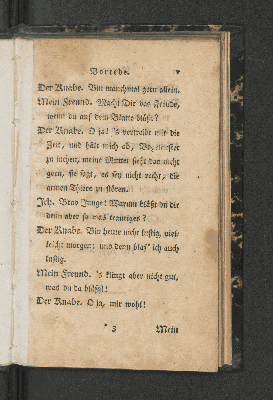 Vorrede. v
Der Knabe. Bin manchmal gern allein.
Mein Freund. Macht Dir das Freude,
wenn du auf dem Blatte bläst?
Der Knabe. O ja! 's vertreibt mir die
Zeit, und hält mich ab, Vogelnester
zu suchen, meine Mutter sieht das nicht
gern, sie sagt, es sey nicht recht, die
armen Thiere zu stören.
Ich. Brav Junge! Warum bläs't du dir
denn aber so was trauriges?
Der Knabe. Bin heute nicht lustig, viel-
leicht morgen; und denn blas' ich auch
lustig.
Mein Freund. 's klingt aber nicht gut,
was du da bläs'st!
Der Knabe. O ja, mir wohl!
* 3 Mein